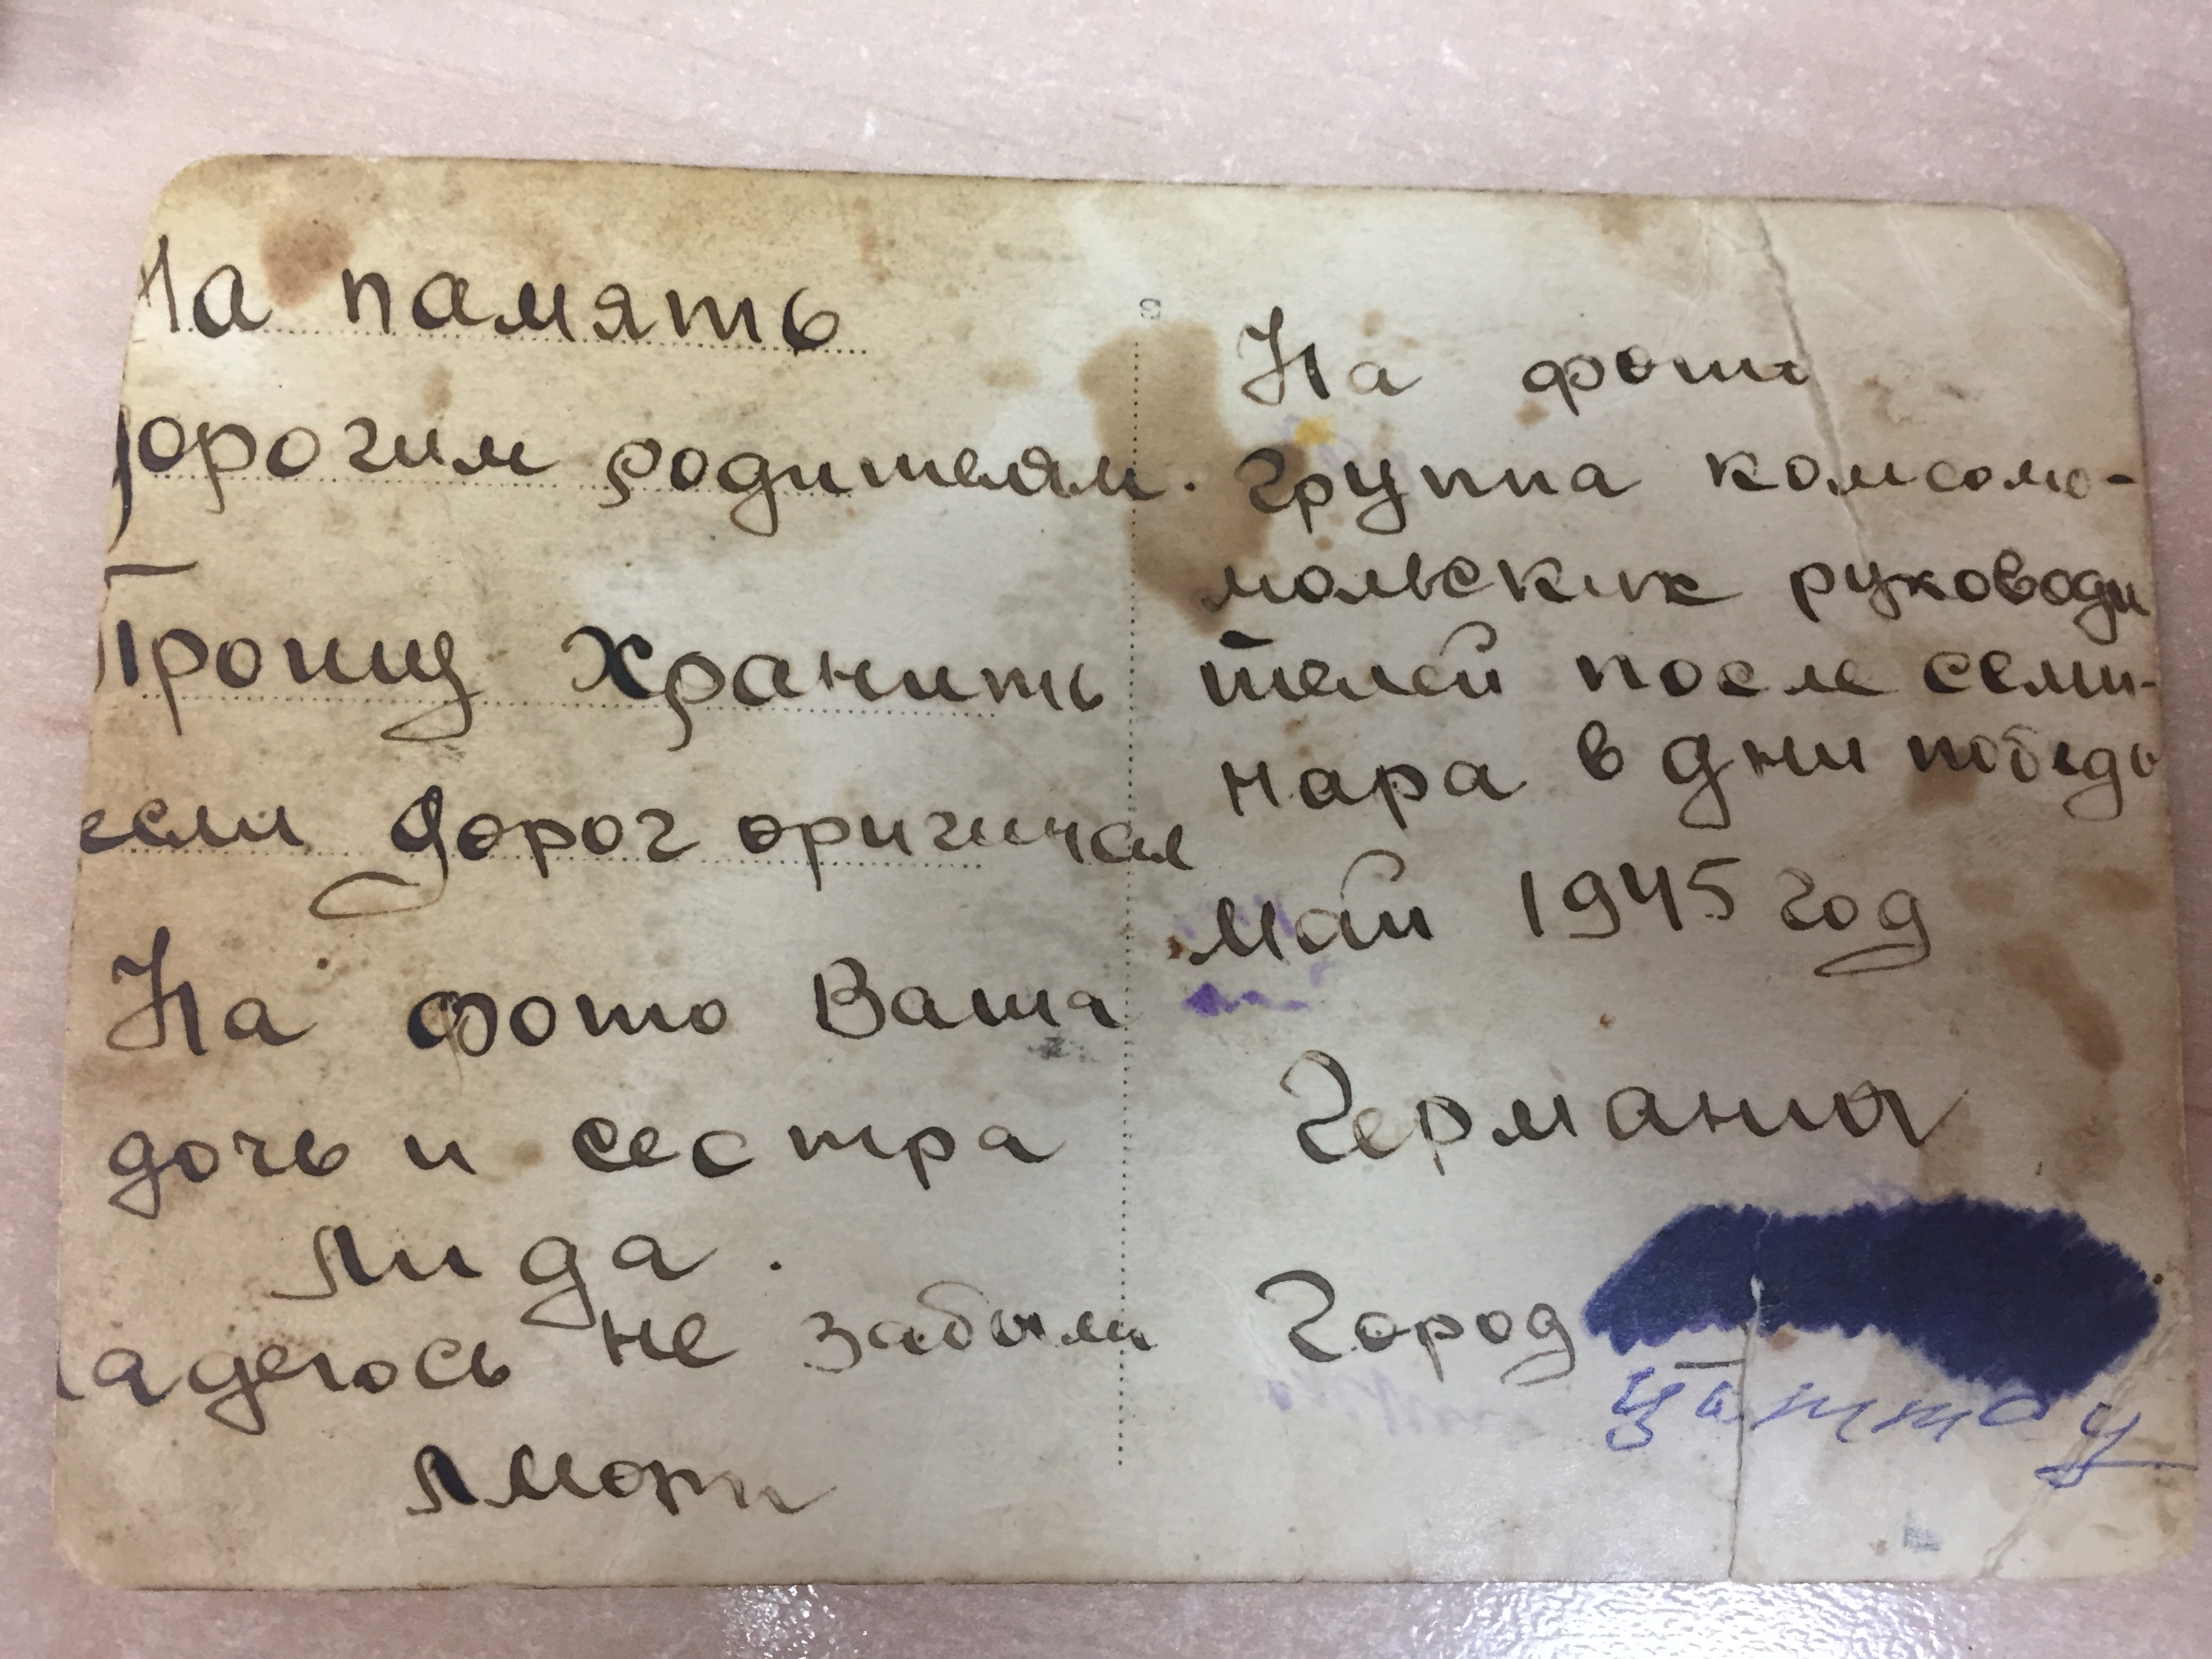 На память
дорогим родителям.
Прошу хранить
если дорог оригинал
На фото Ваша
дочь и сестра
Лида.
надеюсь не забыли
На фото
группа комсомо-
мольских руководи
телей после семи-
нара в дни победы
Май 1945 год
Германия
Город
Циттау